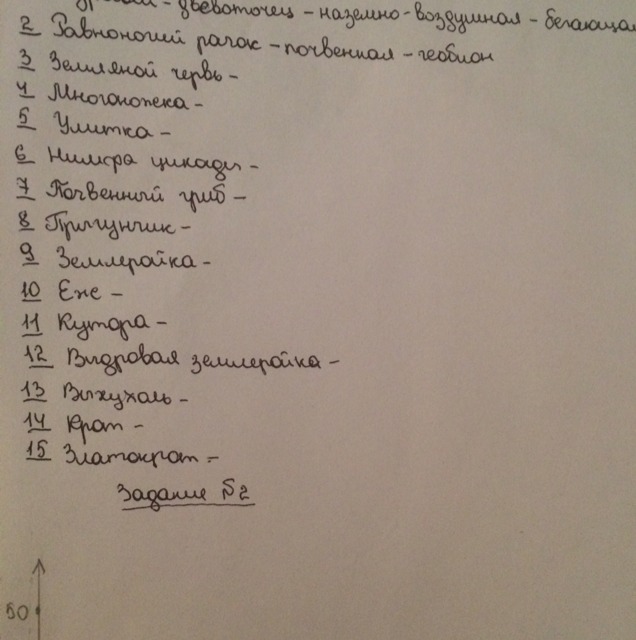 - древоточец - наземно-воздушная - бегающая
2 Равноногий рачок - почвенная - геобион
3 Земляной червь -
4 Многоножека -
5 Улитка -
6 Нимфа цикады -
7 Почвенный гриб -
8 Прыгунчик -
9 Землеройка -
10 Еж -
11 Кутора -
12 Выдровая землеройка -
13 Выхухоль -
14 Крот -
15 Златокрот -
Задание №2
50